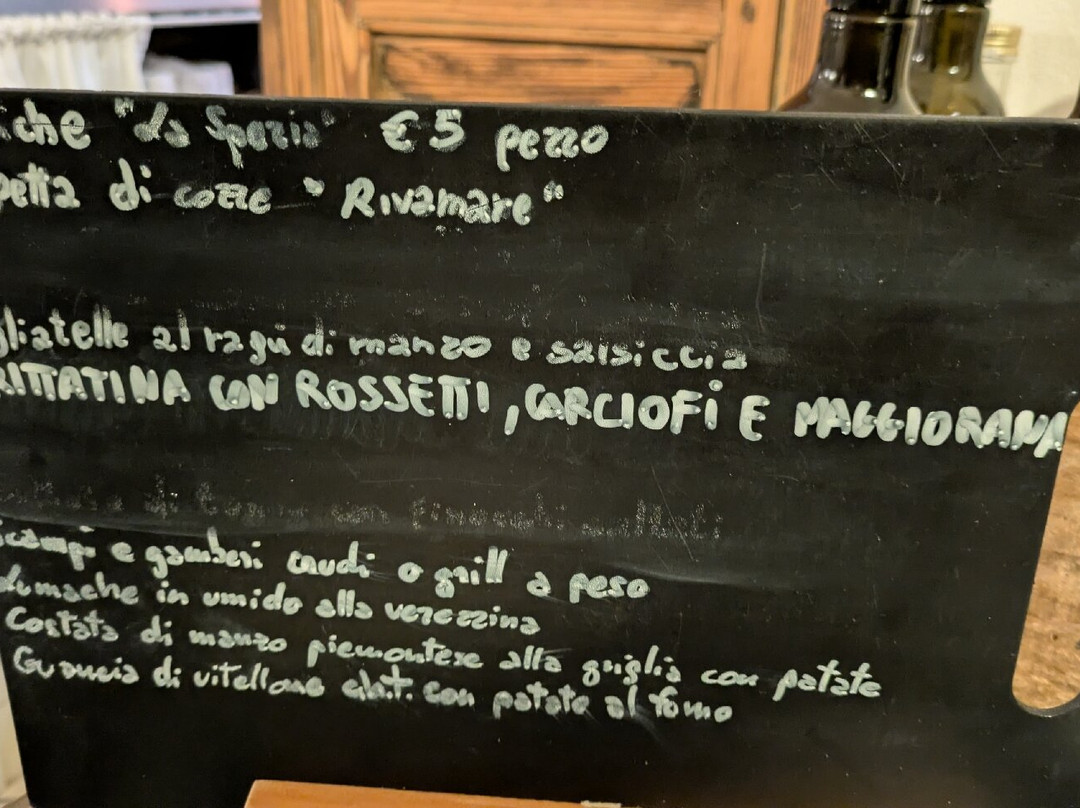 che "La Spezia" €5 pezzo
petta di cozze "Rivamare"
gliatelle al ragù di manzo e salsiccia
RITTATINA CON ROSSETTI, CARCIOFI E MAGGIORANA
di con Finocchi
Scampi e gamberi crudi o grill a peso
Lumache in umido alla verezzina
Costata di manzo piemontese alla griglia con patate
Guancia di vitellone cbt. con patate al forno